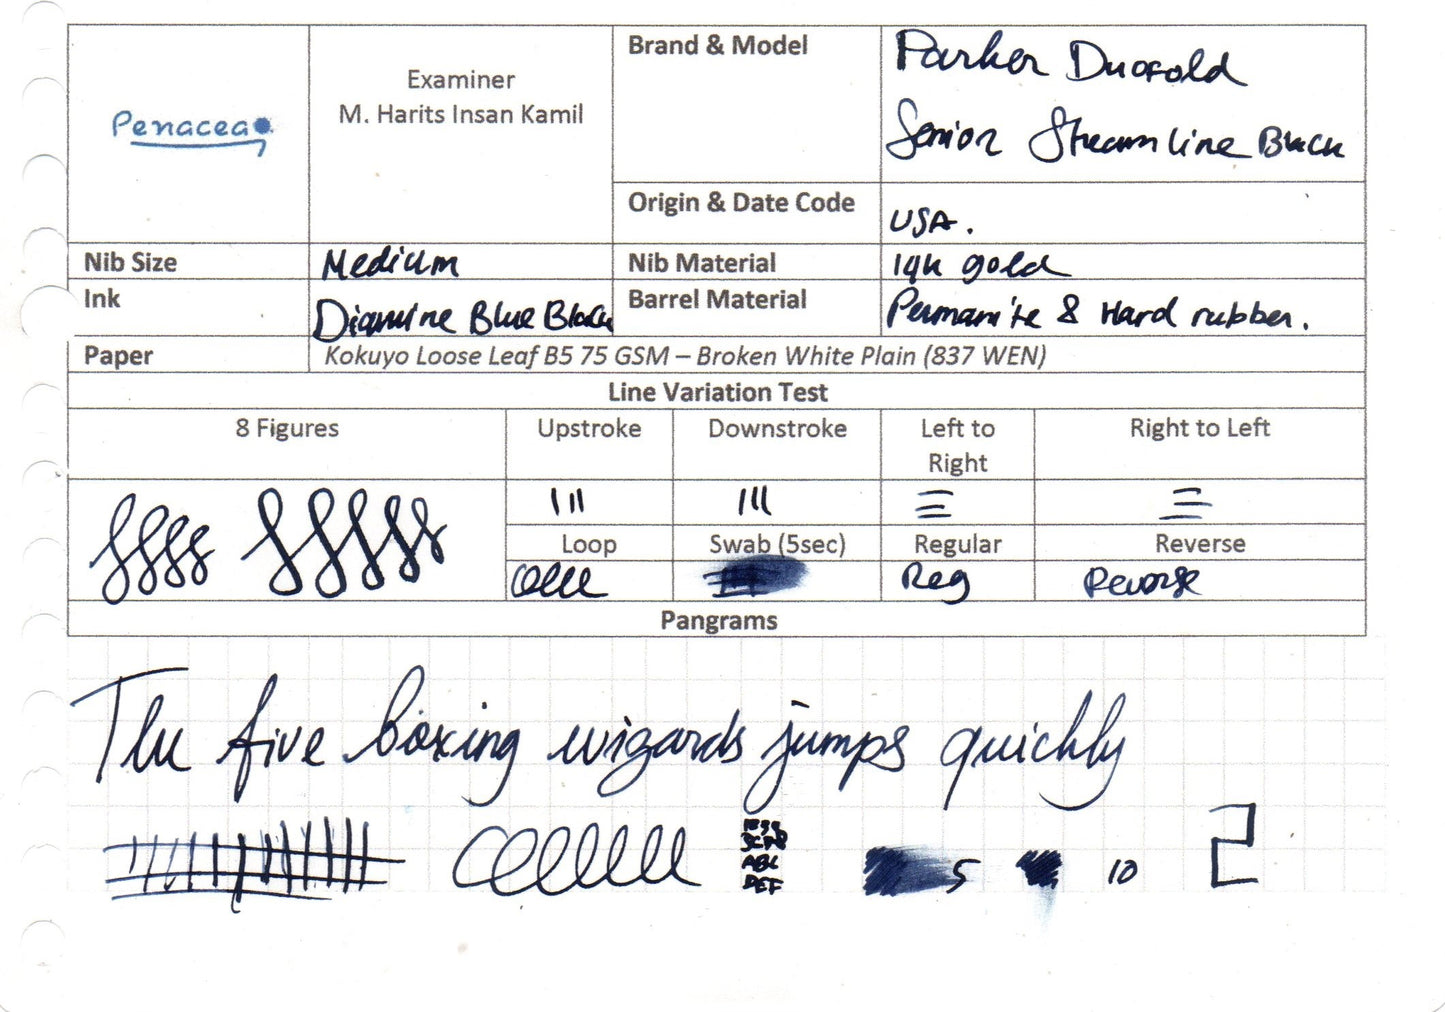 Penacea
Examiner
M. Harits Insan Kamil
Brand & Model
Parker Duofold
Senior Streamline Black
Origin & Date Code
USA.
Nib Size
Medium
Nib Material
14k gold
Ink
Diamine Blue Black
Barrel Material
Permanite & Hard rubber.
Paper
Kokuyo Loose Leaf B5 75 GSM – Broken White Plain (837 WEN)
Line Variation Test
8 Figures
Upstroke
Downstroke
Left to
Right
Right to Left
Loop
Swab (5sec)
Regular
Reverse
Reg
Reverse
Pangrams
The five boxing wizards jumps quickly
ABC
DEF
5
10
2